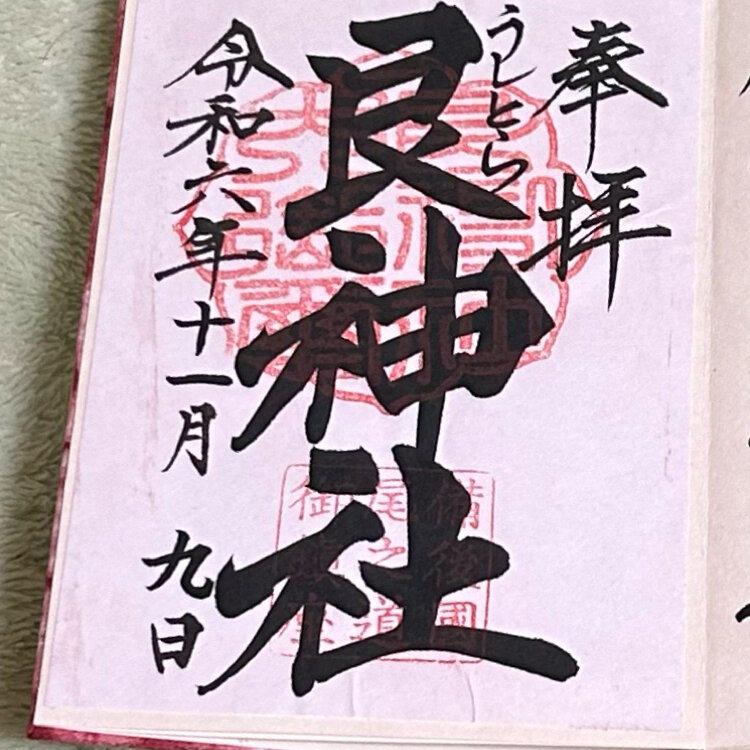 奉拝
うしとら
艮神社
令和六年十一月九日
備後國
尾之道